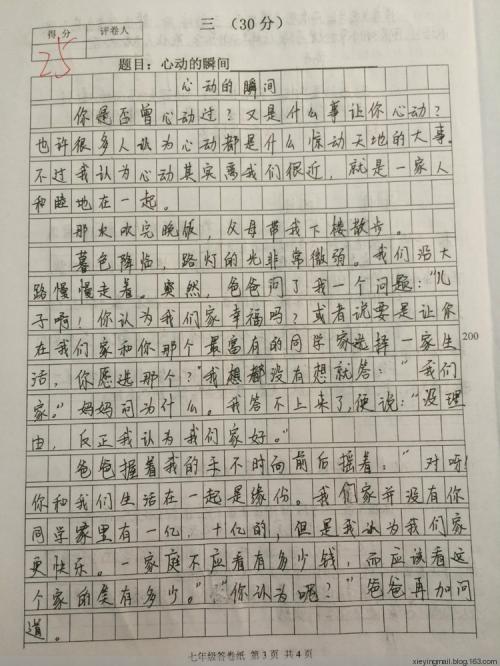 三 （30分）
得分 评卷人
25
题目：心动的瞬间
心动的瞬间
你是否曾心动过？又是什么事让你心动？
也许很多人认为心动都是什么惊动天地的大事。
不过我认为心动其实离我们很近，就是一家人
和睦地在一起。
那次吹完晚饭，父母带我下楼散步。
暮色降临，路灯的光非常微弱。我们沿大
路慢慢走着。突然，爸爸问了我一个问题："儿
子啊！你认为我们家幸福吗？或者说要是让你
在我们家和你那个最富有的同学家选择一家生
200
活，你愿选那个？"我想都没有想就答："我们
家。"妈妈问为什么。我答不上来了，便说："没理
由，反正我认为我们家好。"
爸爸握着我的手不时向前后摇着："对呀！
你和我们生活在一起是缘份。我们家并没有你
同学家里有一亿，十亿的，但是我认为我们家
更快乐。一家庭不应看有多少钱，而应该看这
个家的美有多少。""你认为呢？"爸爸再加问
道。
七年级答卷纸 第3页 共4页
xieyingmail.blog.163.com